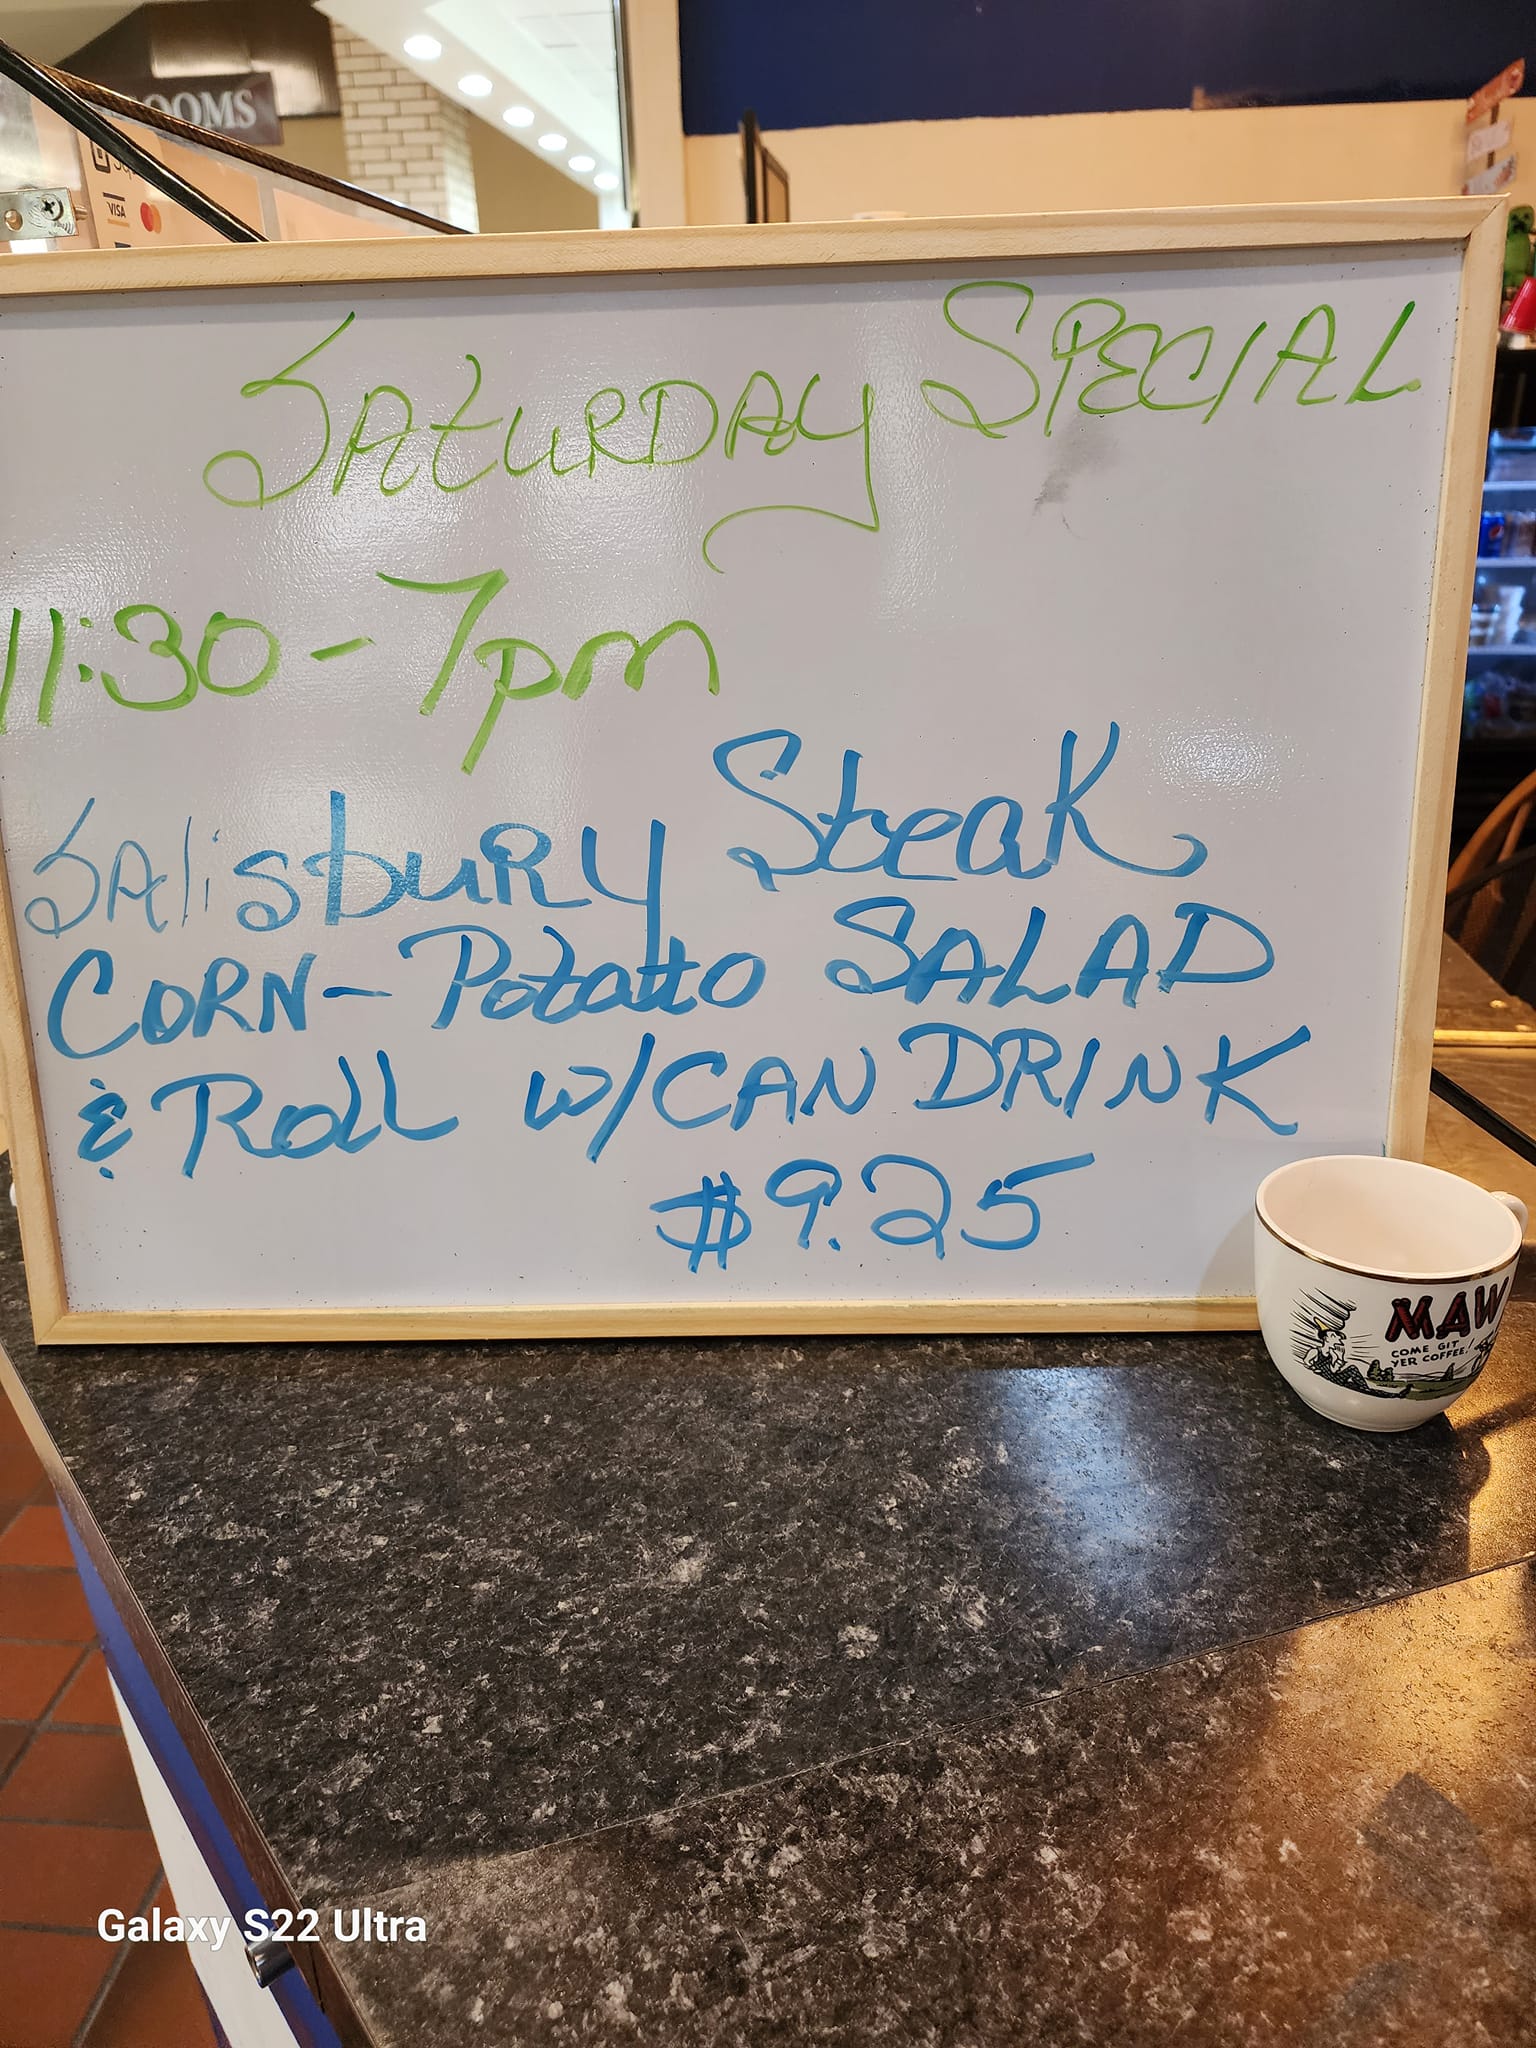 OOMS
VISA
SATURDAY SPECIAL
11:30-7pm
SALisbuRy Steak
CORN-Potatto SALAD
& Roll w/CAN DRINK
$9.25
MAW
COME GIT
YER COFFEE!
Galaxy S22 Ultra